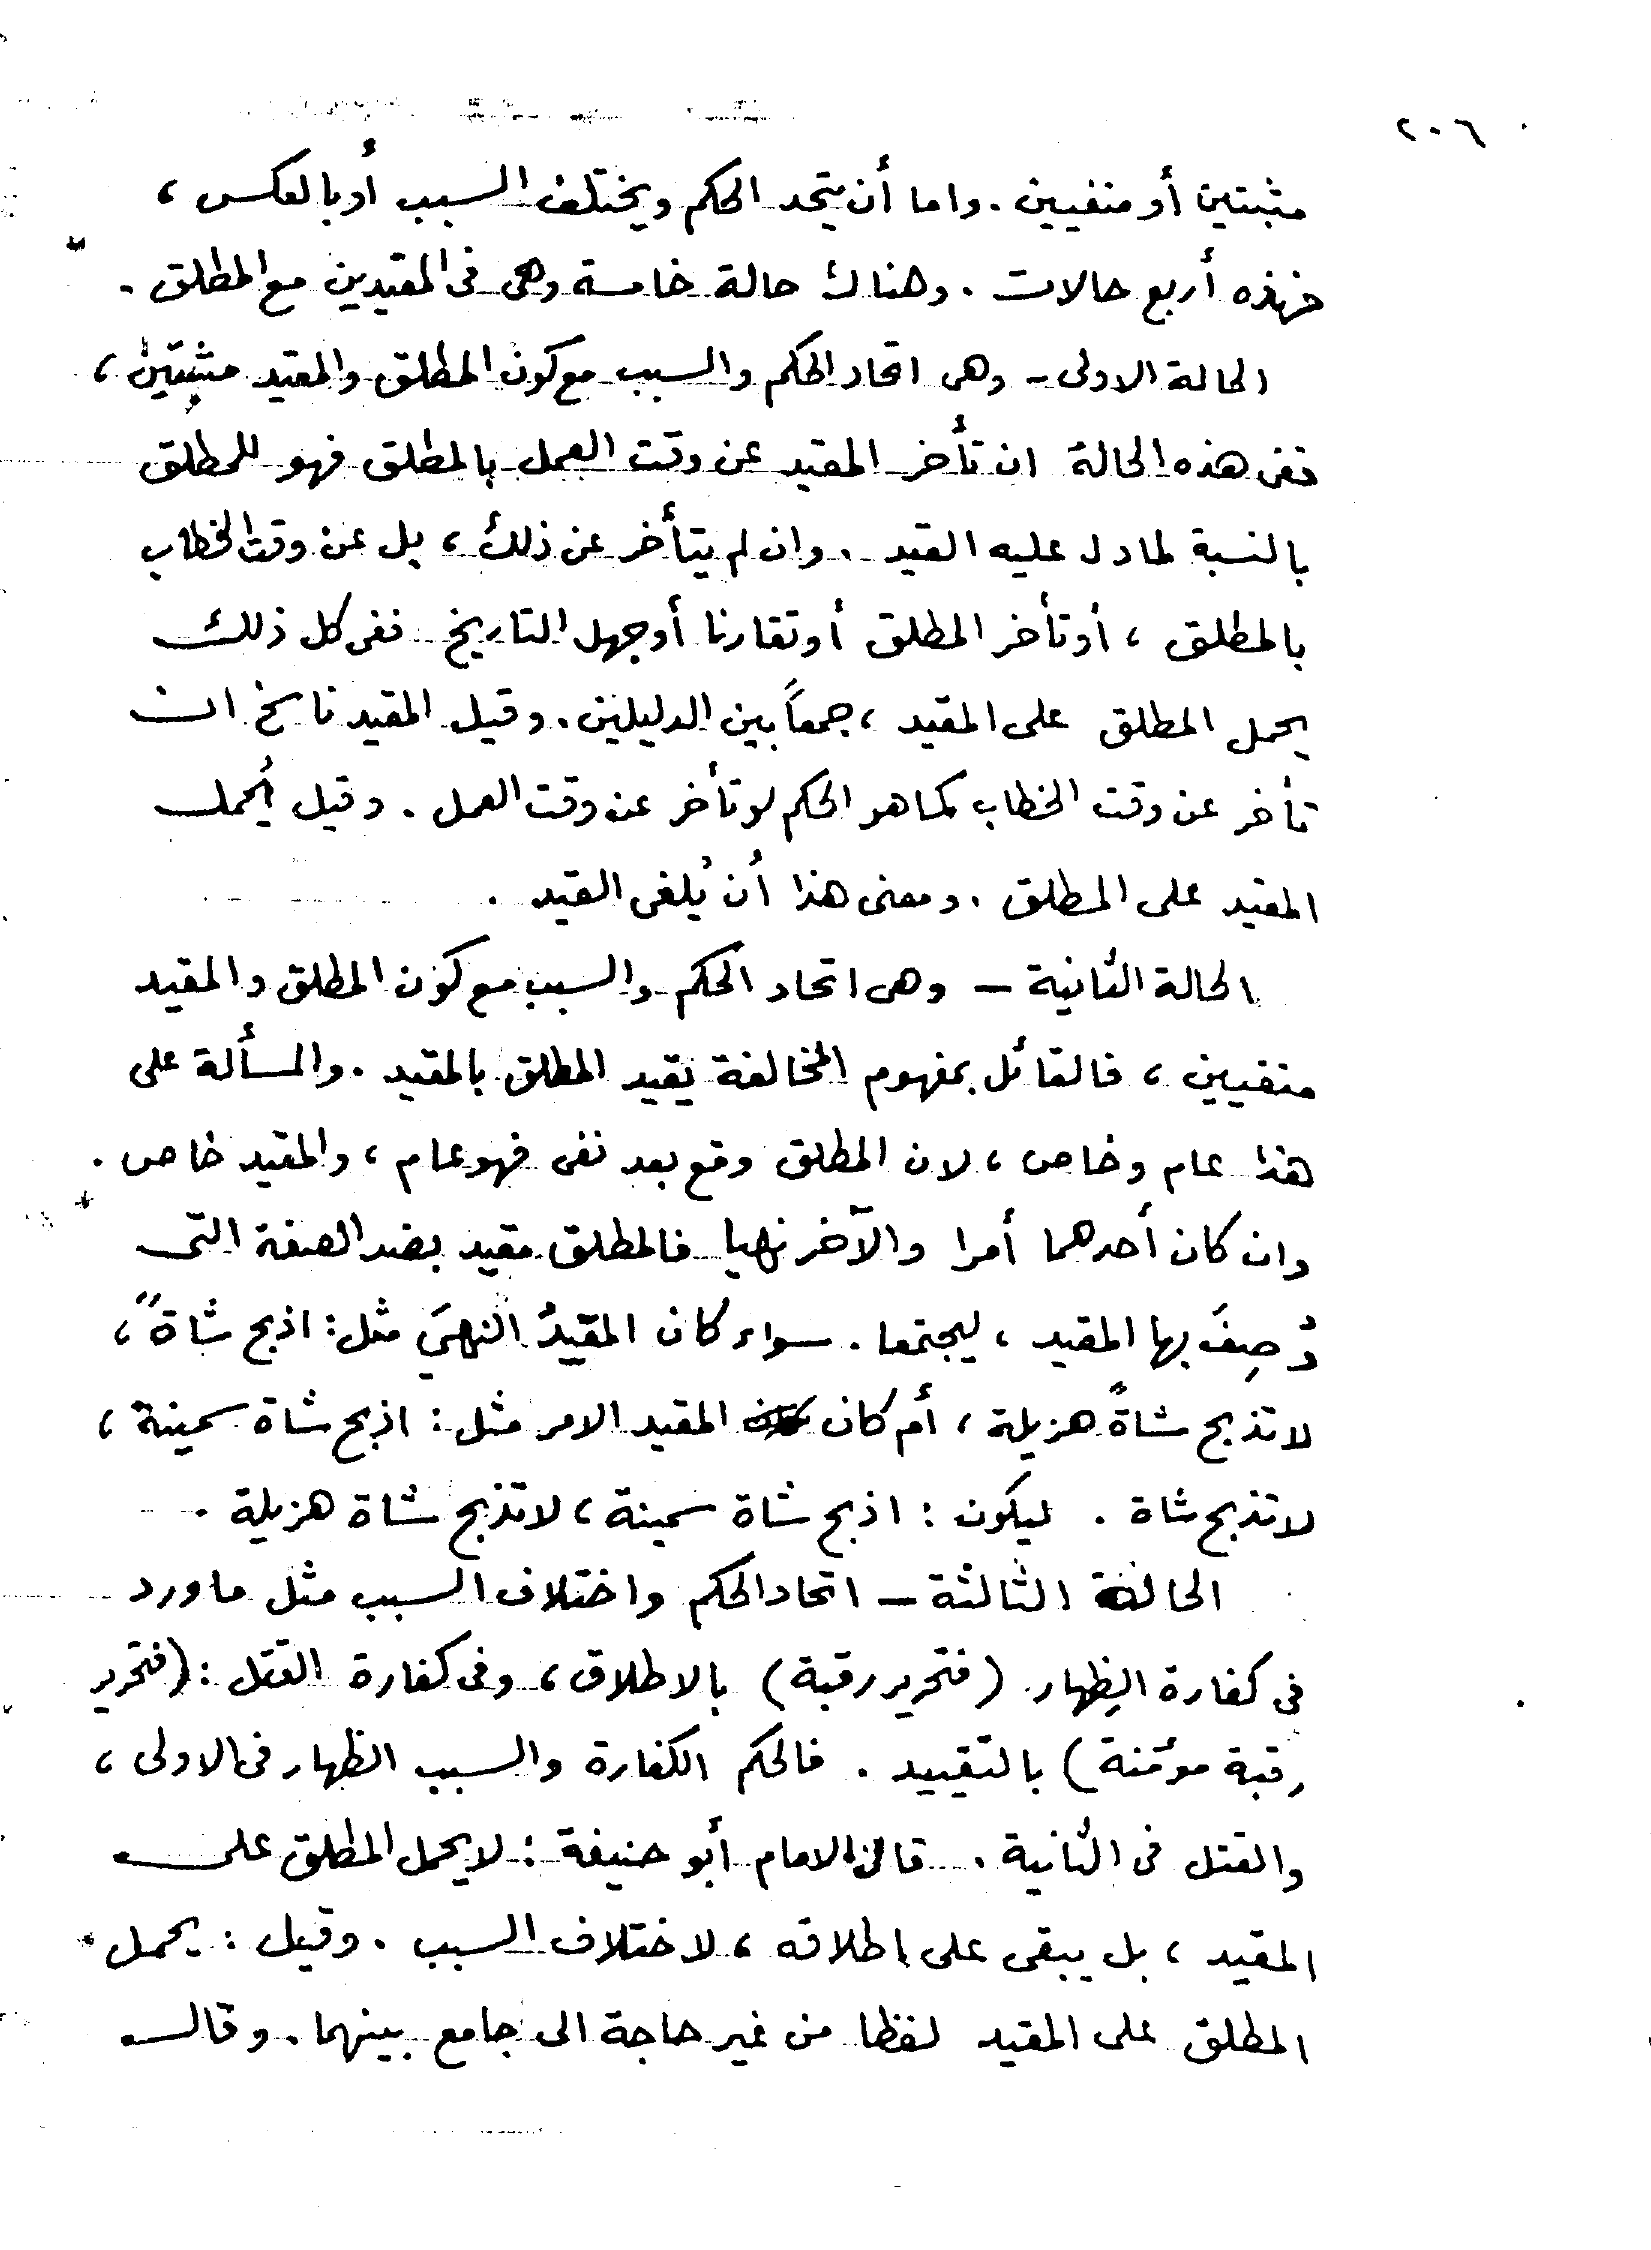 ٢٠٦
مثبتين أو منفيين. واما أن يتحد الحكم ويختلف السبب أو بالعكس ،
فهذه أربع حالات . وهناك حالة خامسة وهى فى المقيدين مع المطلق .
الحالة الاولى - وهى اتحاد الحكم والسبب مع كون المطلق والمقيد مثبتين ،
ففى هذه الحالة ان تأخر المقيد عن وقت العمل بالمطلق فهو للمطلق
بالنسبة لما دل عليه القيد . وان لم يتأخر عن ذلك ، بل عن وقت الخطاب
بالمطلق ، أو تأخر المطلق أو تقارنا أو جهل التاريخ ففى كل ذلك
يحمل المطلق على المقيد ، جمعاً بين الدليلين . وقيل المقيد ناسخ ان
تأخر عن وقت الخطاب كما هو الحكم لو تأخر عن وقت العمل . وقيل يُحمل
المقيد على المطلق . ومعنى هذا أن يُلغى القيد .
الحالة الثانية – وهى اتحاد الحكم والسبب مع كون المطلق والمقيد
منفيين ، فالقائل بمفهوم المخالفة يقيد المطلق بالمقيد . والمسألة على
هذا عام وخاص ، لان المطلق وقع بعد نفى فهو عام ، والمقيد خاص .
وان كان أحدهما أمرا والآخر نهيا فالمطلق مقيد بضد الصفة التى
وُصِفَ بها المقيد ، ليجتمعا . سواء كان المقيدُ النهىَ مثل : اذبح شاةً ،
لا تذبح شاةً هزيلة ، أم كان المقيد الامر مثل : اذبح شاة سمينة ،
لا تذبح شاة . ليكون : اذبح شاة سمينة ، لا تذبح شاة هزيلة .
الحالة الثالثة – اتحاد الحكم واختلاف السبب مثل ما ورد
فى كفارة الظِهار (فتحرير رقبة) بالاطلاق ، وفى كفارة القتل : (فتحرير
رقبة مؤمنة) بالتقييد . فالحكم الكفارة والسبب الظهار فى الاولى ،
والقتل فى الثانية . قال الامام أبو حنيفة : لا يحمل المطلق على
المقيد ، بل يبقى على اطلاقه ، لاختلاف السبب . وقيل : يحمل
المطلق على المقيد لفظا من غير حاجة الى جامع بينهما . وقال